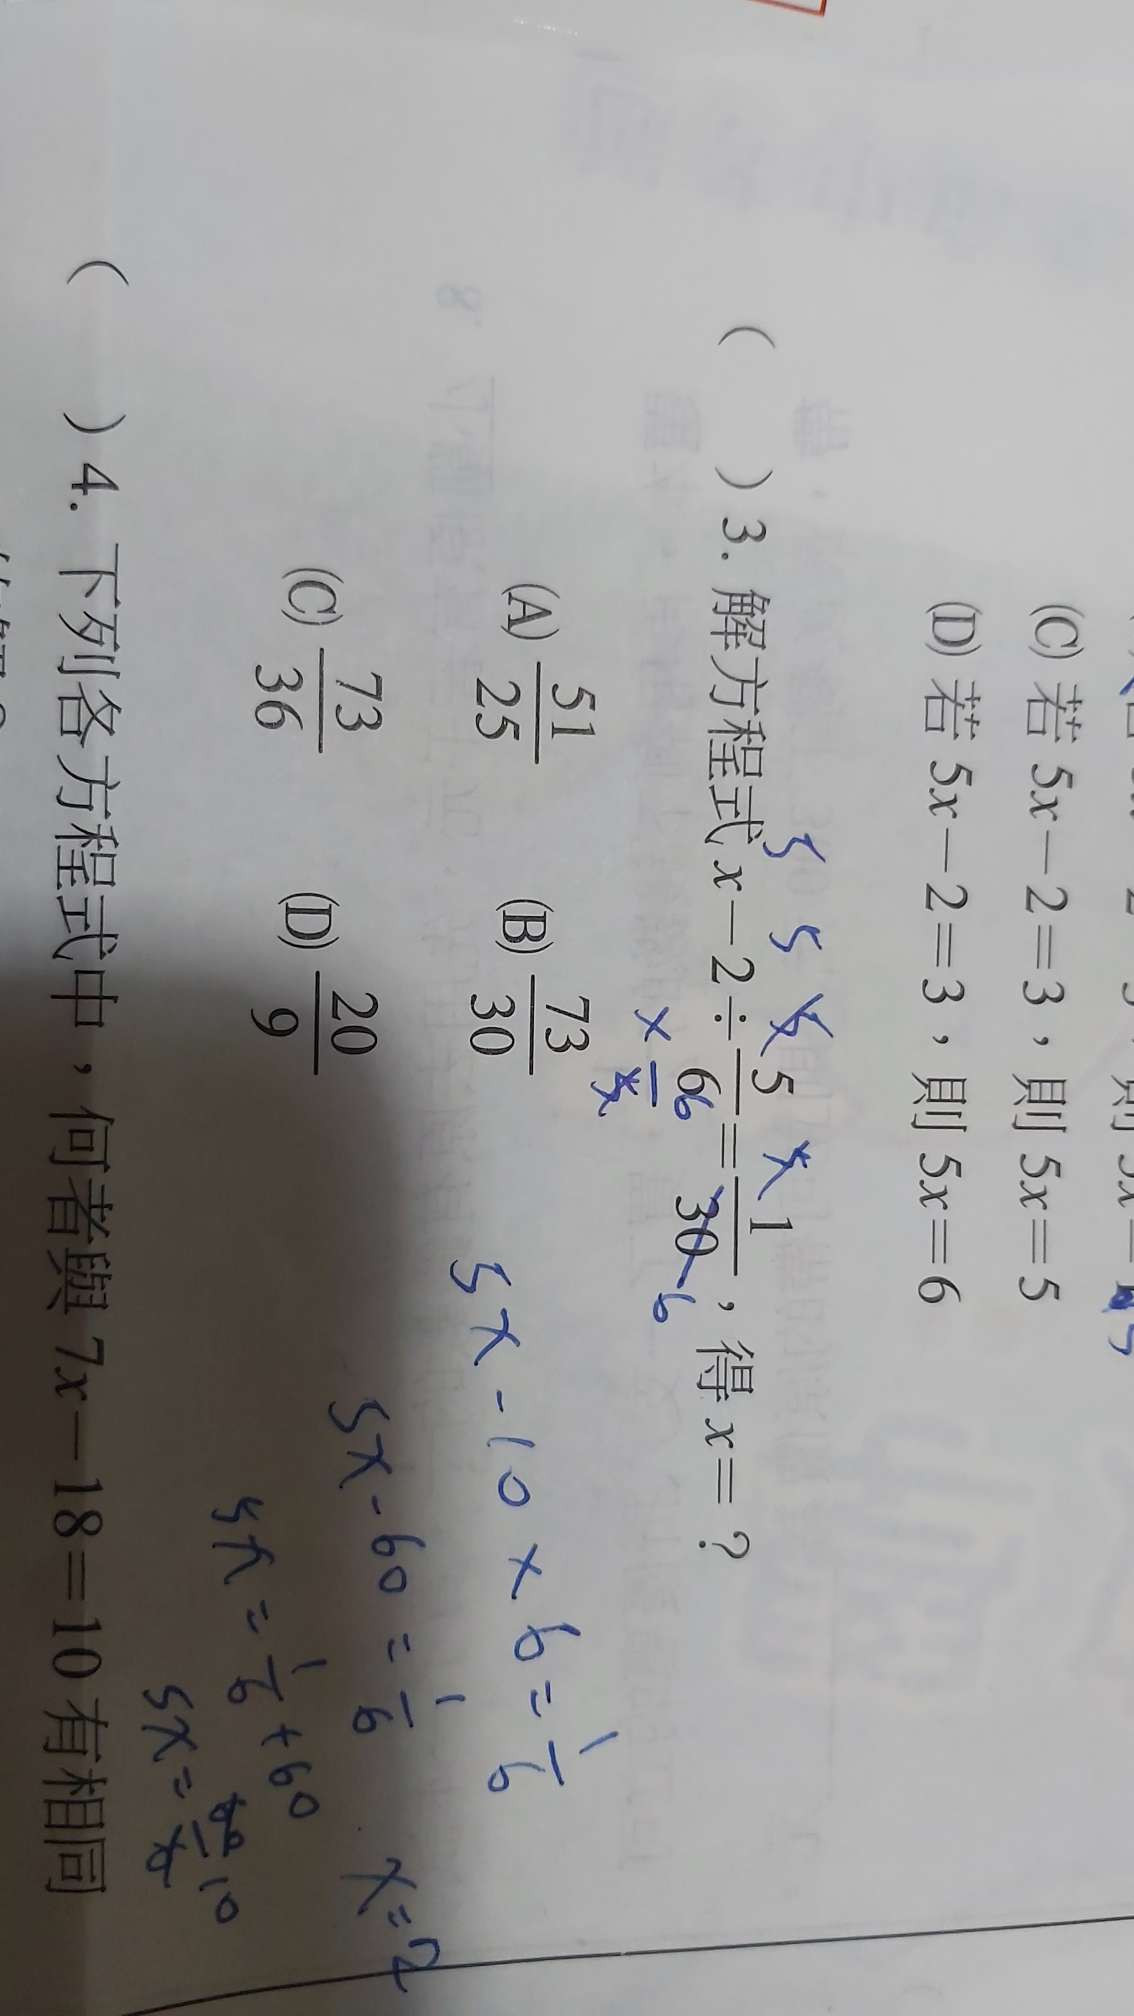 (C) 若 5x－2＝3，則 5x＝5
(D) 若 5x－2＝3，則 5x＝6
5 5
( ) 3. 解方程式 x－2÷5/6＝1/30，得 x＝？
6
6
(A) 51/25 (B) 73/30
(C) 73/36 (D) 20/9
5x - 10 × 6 = 1/6
5x - 60 = 1/6
5x = 1/6 + 60
5x =
10
x = 2
( ) 4. 下列各方程式中，何者與 7x－18＝10 有相同